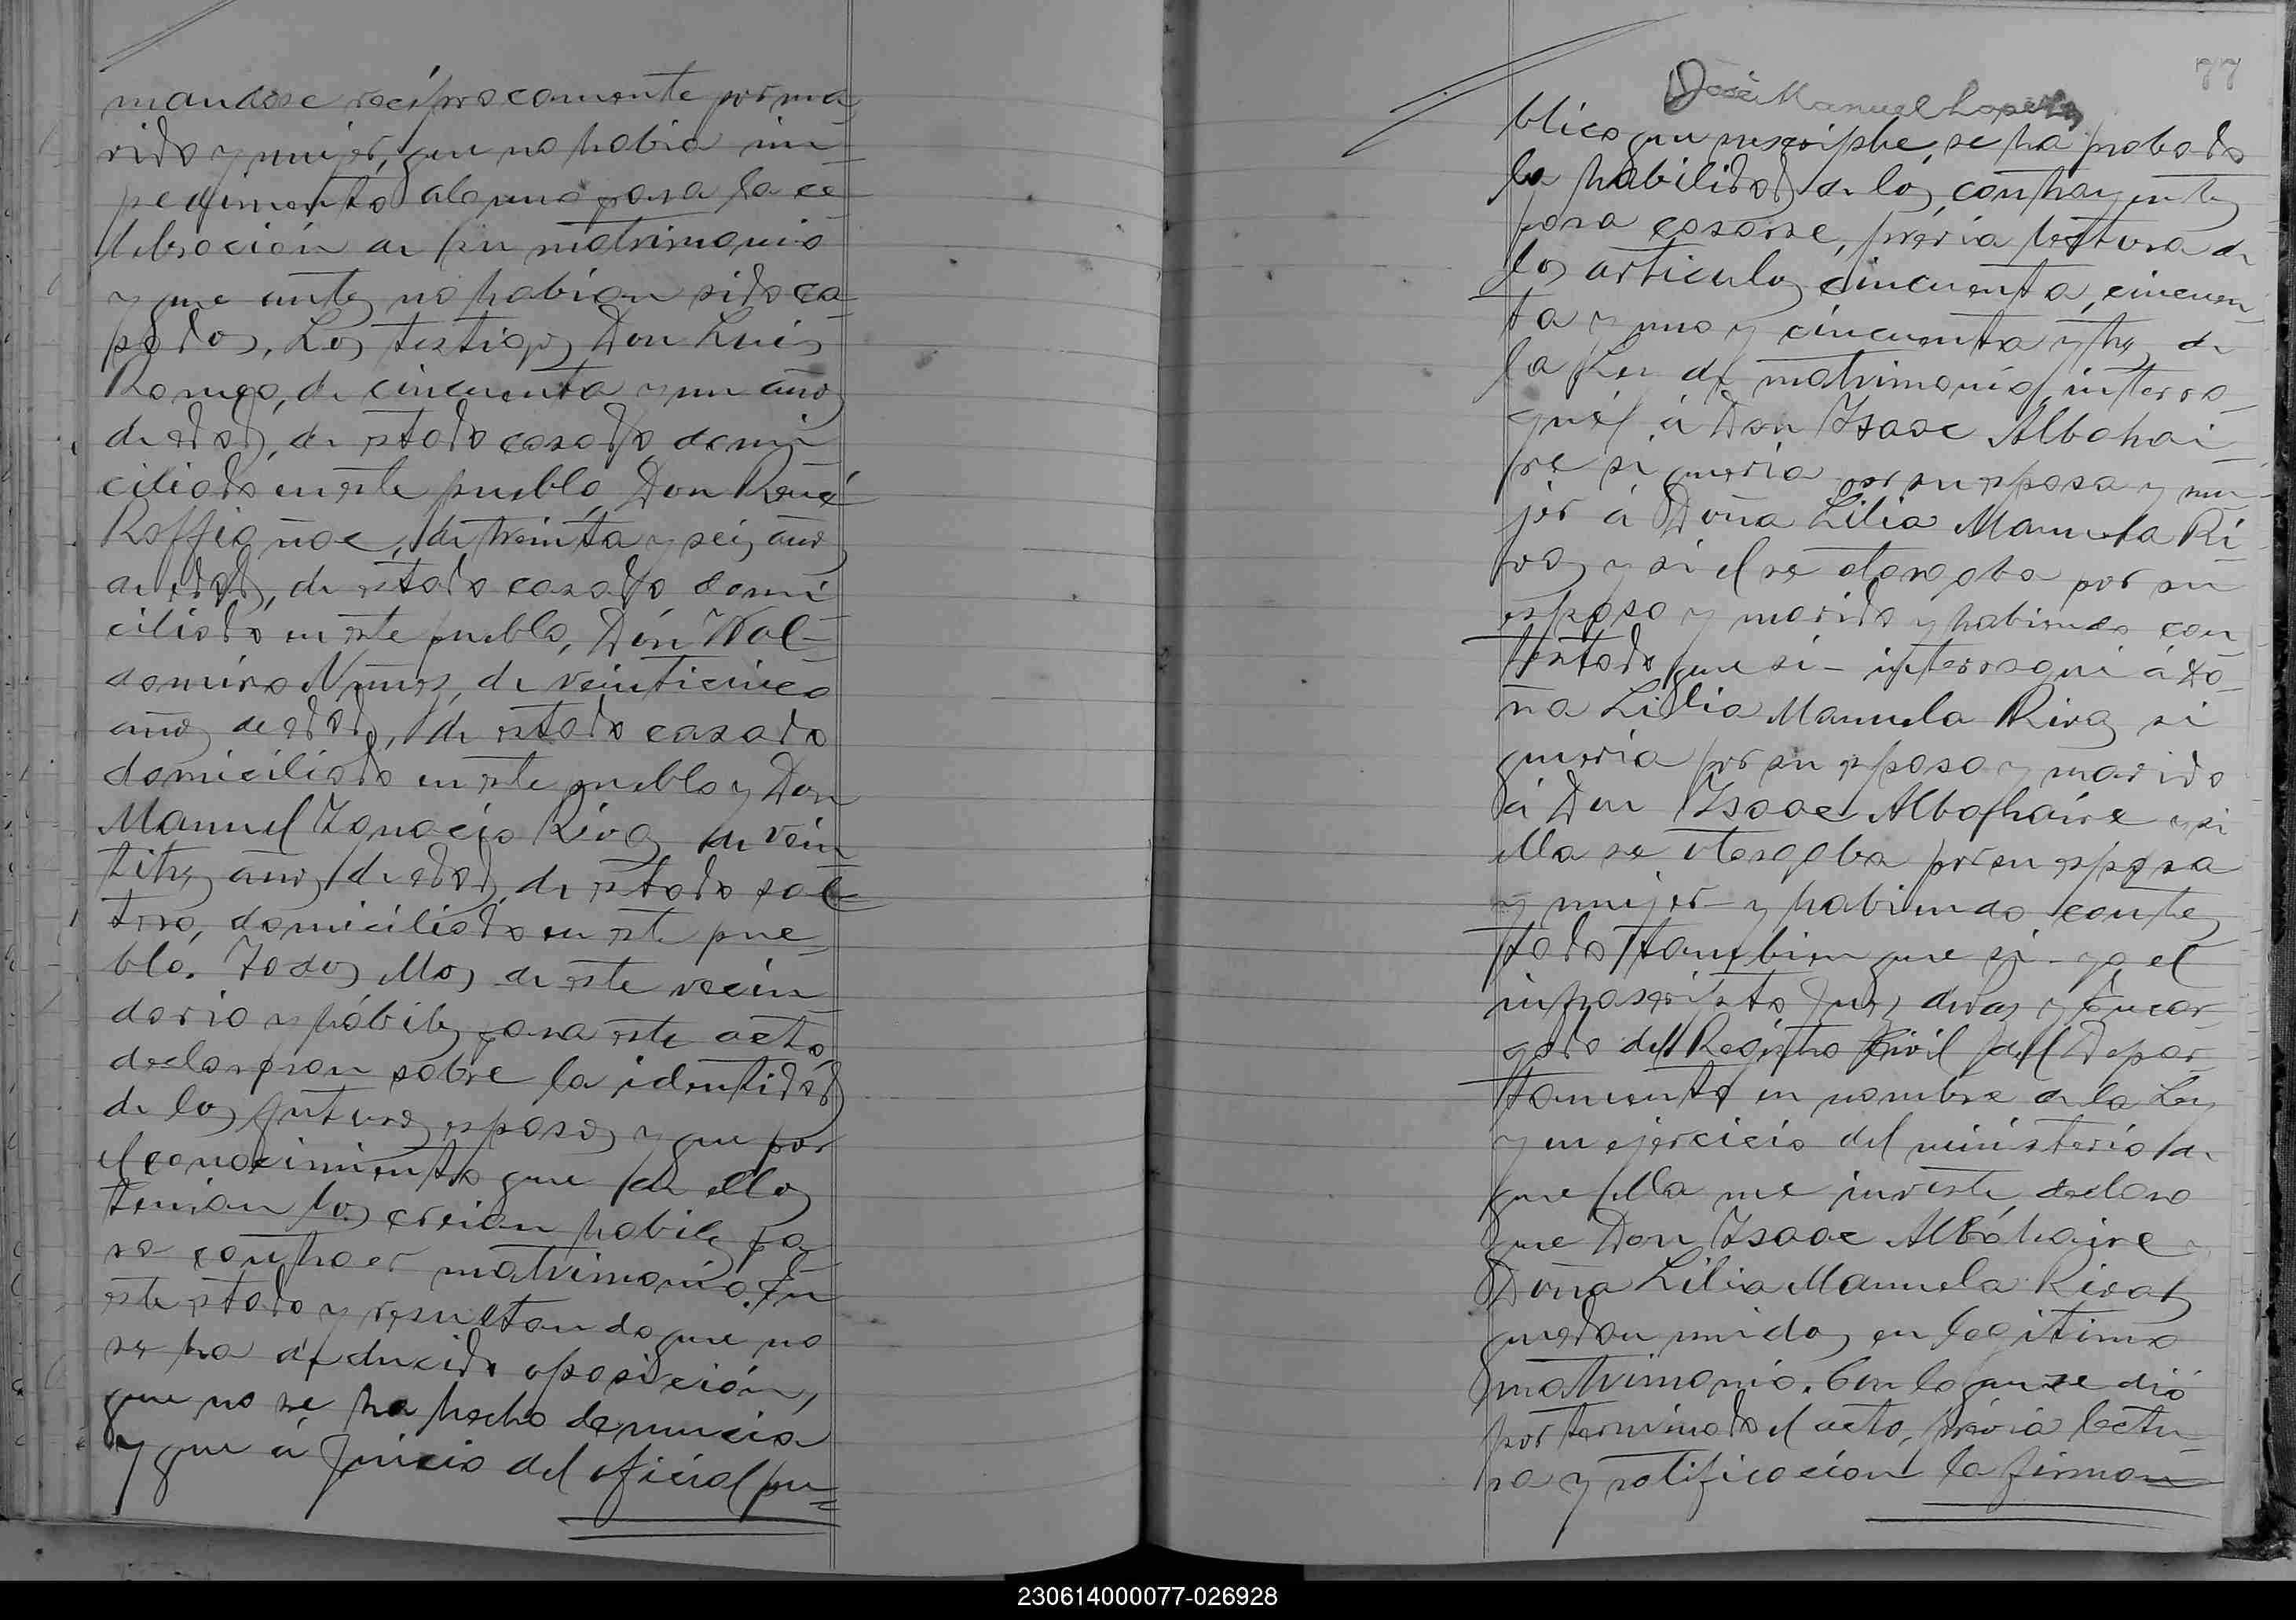 mandose reciprocamente por ma-
rido y mujer, que no habia im-
pedimento alguno para la ce-
lebración de su matrimonio
y que antes no habian sido ca-
sados. Los testigos Don Luis
Romeo, de cincuenta y un años
de edad, de estado casado, domi-
ciliado en este pueblo, Don René
de treinta y seis años
de edad, de estado casado domi-
ciliado en este pueblo, Don Wal-
domiro Nunes, de veinticinco
años de edad, de estado casado
domiciliado en este pueblo y Don
Manuel Ignacio Rivas de vein-
titres años de edad, de estado sol-
tero, domiciliado en este pue-
blo. Todos ellos de este vecin-
dario y hábiles para este acto,
declararon sobre la identidad
de los futuros esposos y que por
el conocimiento que de ellos
tenian los creian habiles pa-
ra contraer matrimonio. En
este estado y resultando que no
se ha deducido oposición,
que no se ha hecho denuncia
y que á juicio del oficial pu-
77
José Manuel Lopez
blico que suscribe, se ha probado
la habilidad de los contrayentes
para casarse, prévia lectura de
los articulos cincuenta, cincuen-
ta y uno y cincuenta y tres de
la Ley de matrimonio, interro-
gué á Don Isaac Albohai-
re si queria por su esposa y mu-
jer á Doña Lilia Manuela Ri-
vas y si el se otorgaba por su
esposo y marido y habiendo con-
testado que si - interrogué á Do-
ña Lilia Manuela Rivas si
queria por su esposo y marido
á Don Isaac Albohaire y si
ella se otorgaba por su esposa
y mujer - y habiendo contes-
tado tambien que si - yo el
infrascripto Juez de Paz y Encar-
gado del Registro Civil del Depar-
tamento en nombre de la Ley
y en ejercicio del ministerio de
que ella me inviste, declaro
que Don Isaac Albohaire y
Doña Lilia Manuela Rivas
quedan unidos en legitimo
matrimonio. Con lo que se dió
por terminado el acto, prévia lectu-
ra y ratificacion la firman
230614000077-026928